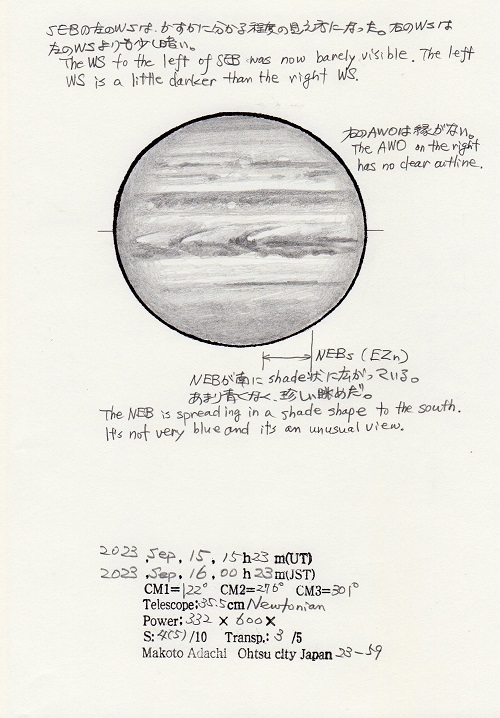 SEBの左のWSは、かすかに分かる程度の見え方になった。右のWSは
左のWSよりも少し暗い。
The WS to the left of SEB was now barely visible. The left
WS is a little darker than the right WS.
右のAWOは縁がない。
The AWO on the right
has no clear outline.
NEBs (EZn)
NEBが南にshade状に広がっている。
あまり青くなく、珍しい眺めだ。
The NEB is spreading in a shade shape to the south.
It's not very blue and it's an unusual view.
2023, Sep, 15, 15h23m(UT)
2023, Sep, 16, 00h23m(JST)
CM1=122° CM2=276° CM3=301°
Telescope:35.5cm/Newtonian
Power:332× 600×
S:4(5)/10 Transp.:3/5
Makoto Adachi Ohtsu city Japan 23-59